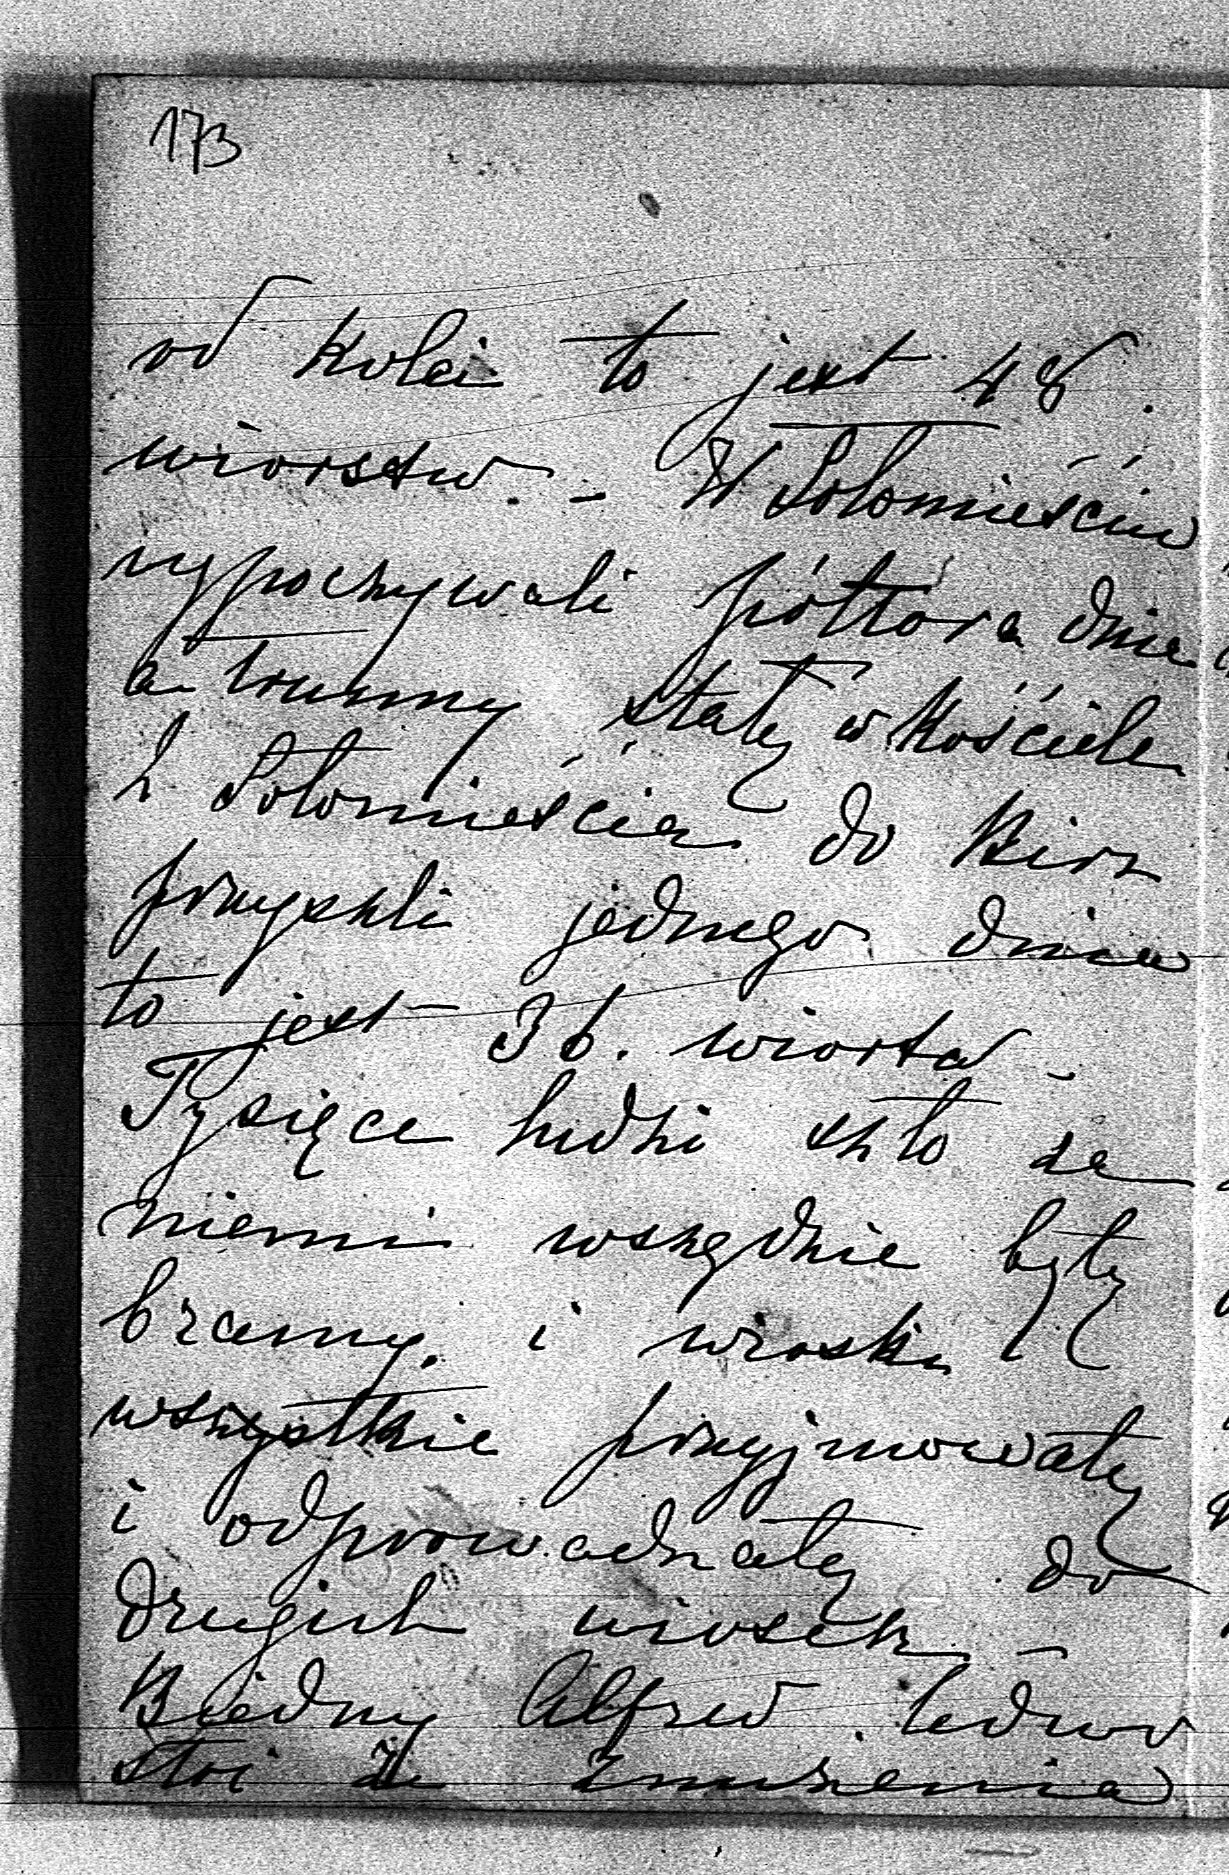 173
od kolei to jest 48.
wiorstw. - W Sołomieściu
wypoczywali półtora dnia
a trumny stały w kościele
z Sołomieścia do Birż
przyszli jednego dnia
to jest 36. wiorstw -
Tysiące ludzi szło za
niemi wszędzie były
bramy. i wioski
wszystkie przyjmowały
i odprowadzały do
drugich wiosek -
Biedny Alfred ledwo
stoi ze zmużenia